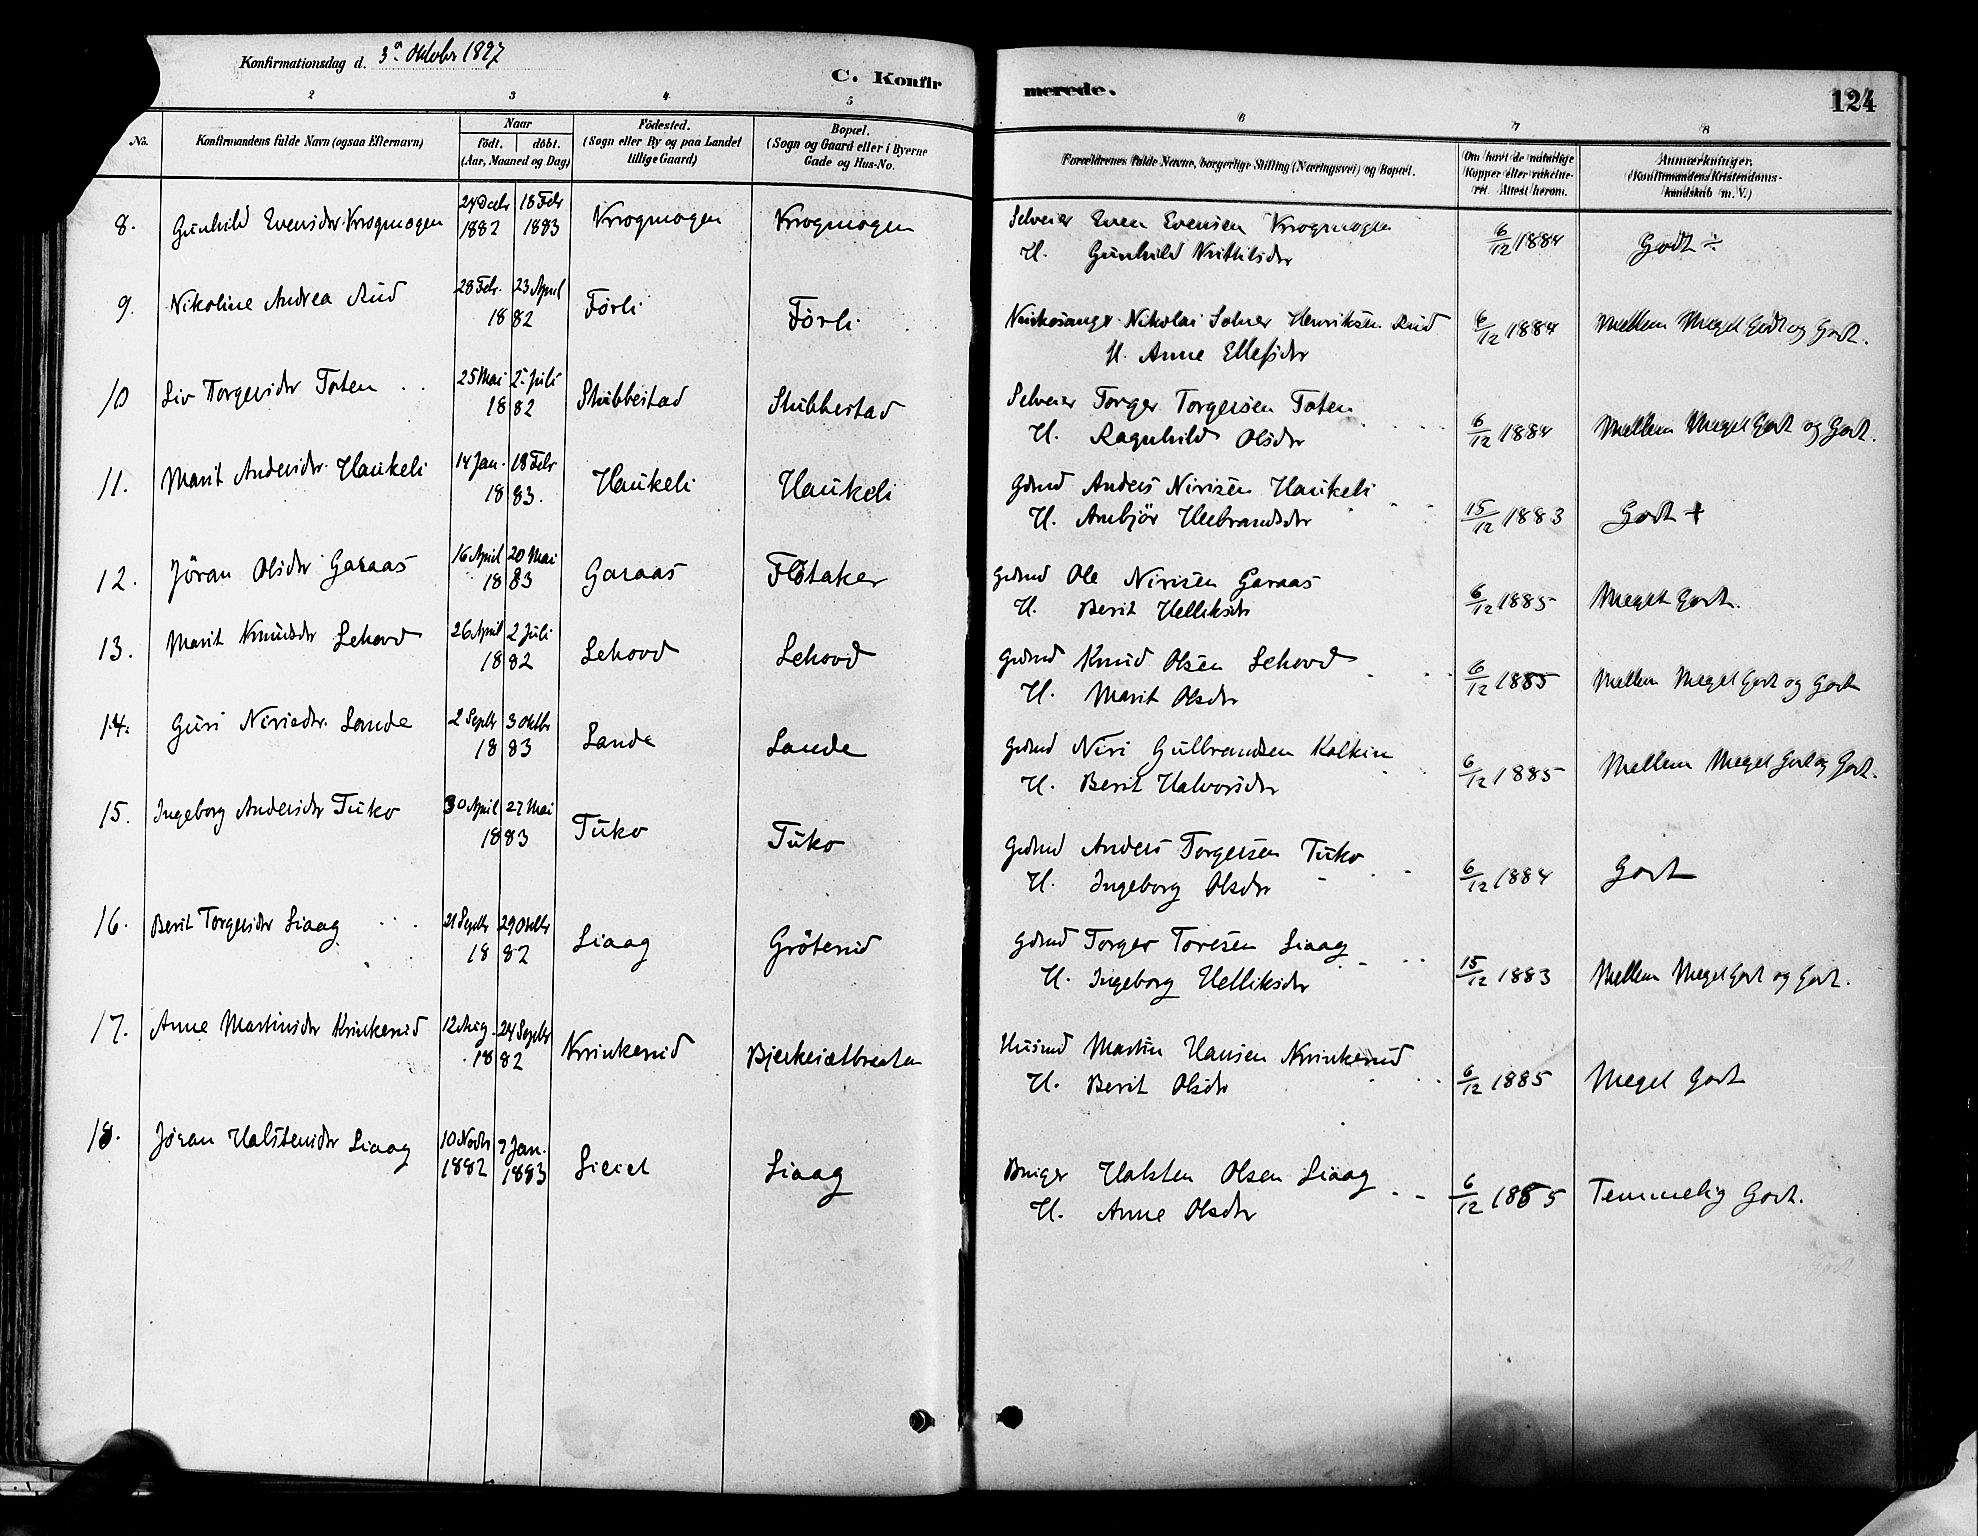 Konfirmationsdag d. 3ª Oktober 1897
C. Konfirmerede.
124
2 3 4 5 6 7 8
No. Konfirmandens fulde Navn (ogsaa Efternavn) Naar födt. döbt. (Aar, Maaned og Dag) Födested. (Sogn eller By og paa Landet tillige Gaard) Bopæl. (Sogn og Gaard eller i Byerne Gade og Hus-No. Forældrenes fulde Navne, borgerlige Stilling (Næringsvei) og Bopæl. Om havt de naturlige Kopper eller vakcineret. Attest herom. Anmærkninger. (Konfirmandens Kristendomskundskab m. V.)
8. Gunhild Evensdr. Krogmogen 24 Decbr 1882 18 Febr 1883 Krogmogen Krogmogen Selveier Even Evensen Krogmogen 6/12 1884 Godt ÷
H. Gunhild Kittilsdr
9. Nikoline Andrea Rud 28 Febr. 23 April 1882 Förli Förli Nikolai Solner Henriksen Rud 6/12 1884 Mellem Meget Godt og Godt.
H. Anne Ellefsdr
10 Liv Torgersdr Toten 25 Mai 2. Juli 1882 Stubbestad Stubbestad Selveier Torger Torgersen Toten 6/12 1884 Mellem Meget Godt og Godt.
H. Ragnhild Olsdr
11. Marit Andersdr. Haukeli 14 Jan. 18 Febr 1883. Haukeli Haukeli Gdmd Anders Nirisen Haukeli 15/12 1883 Godt +
H. Ambjör Hlebrandsdr
12. Jöran Olsdr Garaas 16 April 20 Mai 1883 Garaas Flötaker Gdmd Ole Nirisen Garaas 6/12 1885 Meget Godt.
H. Berit Helliksdr
13. Marit Knudsdr Lehovd 26 April 2 Juli 1882 Lehovd Lehovd Gdmd Knud Olsen Lehovd 6/12 1885 Mellem Meget Godt og Godt
H. Marit Olsdr
14. Guri Nirisdr. Sande 2 Septbr 3 Oktbr 1883 Sande Sande Gdmd Niri Gulbrandsen Kolkin 6/12 1885 Mellem Meget Godt og Godt.
H. Berit Halvorsdr
15. Ingeborg Andersdr Tuko 30 April 27 Mai 1883 Tuko Tuko Gdmd Anders Torgersen Tuko 6/12 1884 Godt
H. Ingeborg Olsdr
16. Berit Torgersdr Liaag 21 Septbr 29 Oktbr 1882 Liaag Gröterud Gdmd Torger Toresen Liaag 15/12 1883 Mellem Meget Godt og Godt.
H. Ingeborg Helliksdr
17. Anne Martinsdr Krinkerud 12 Aug. 24 Septbr 1882 Krinkerud Bjerkeiætbraaten Husmd Martin Hansen Krinkerud 6/12 1885 Meget Godt
H. Berit Olsdr
18. Jöran Halstensdr Liaag 10 Novbr 1882 7 Jan. 1883 Liaag Bruger Halsten Olsen Liaag 6/12 1885 Temmelig Godt.
H. Anne Olsdr